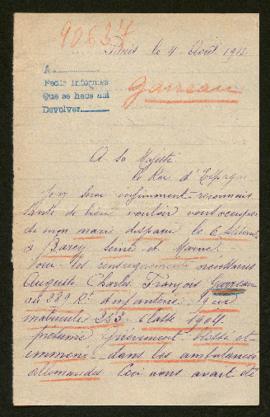 40837
Paris le 4 Août 191
A
Pedir informes
Que se hace así
Devolver.
Garreau
A Sa Majesté
le Roi d'Espagne
infiniment reconnais
sante de bien vouloir vous occuper
de mon mari disparu le 6
à Barcy Seine et Marne
Pour les renseignements nécessaires
Auguste Charles François Garreau
au 289 Rt d'infanterie
matricule 253 classe
présumé grièvement blessé et
emmené dans les ambulances
allemandes Ceci nous avait été